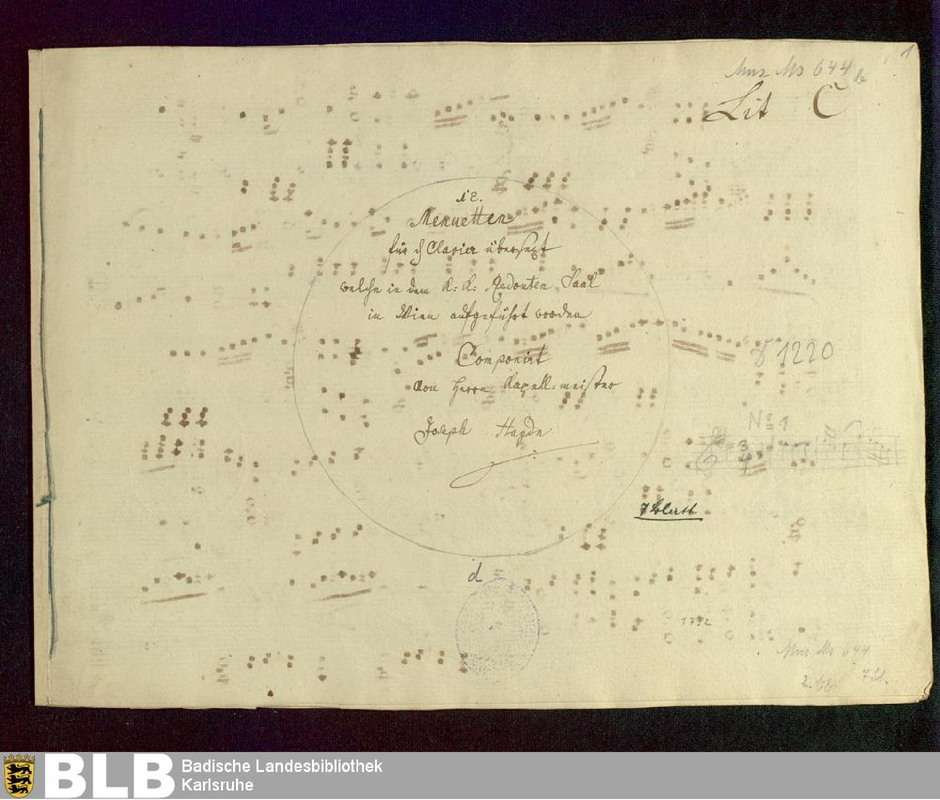 1
Mus. Ms 644
Lit C
12.
Menuetten
für's Clavier übersezt
welche in dem K: K: Redouten Saal
in Wien aufgeführt worden
Componirt
von Herrn Kapell-meister
Joseph Haydn
1220
No 1
3
4
7 Blatt
d
1792
Mus. Ms 644
7 Bl.
BLB Badische Landesbibliothek
Karlsruhe